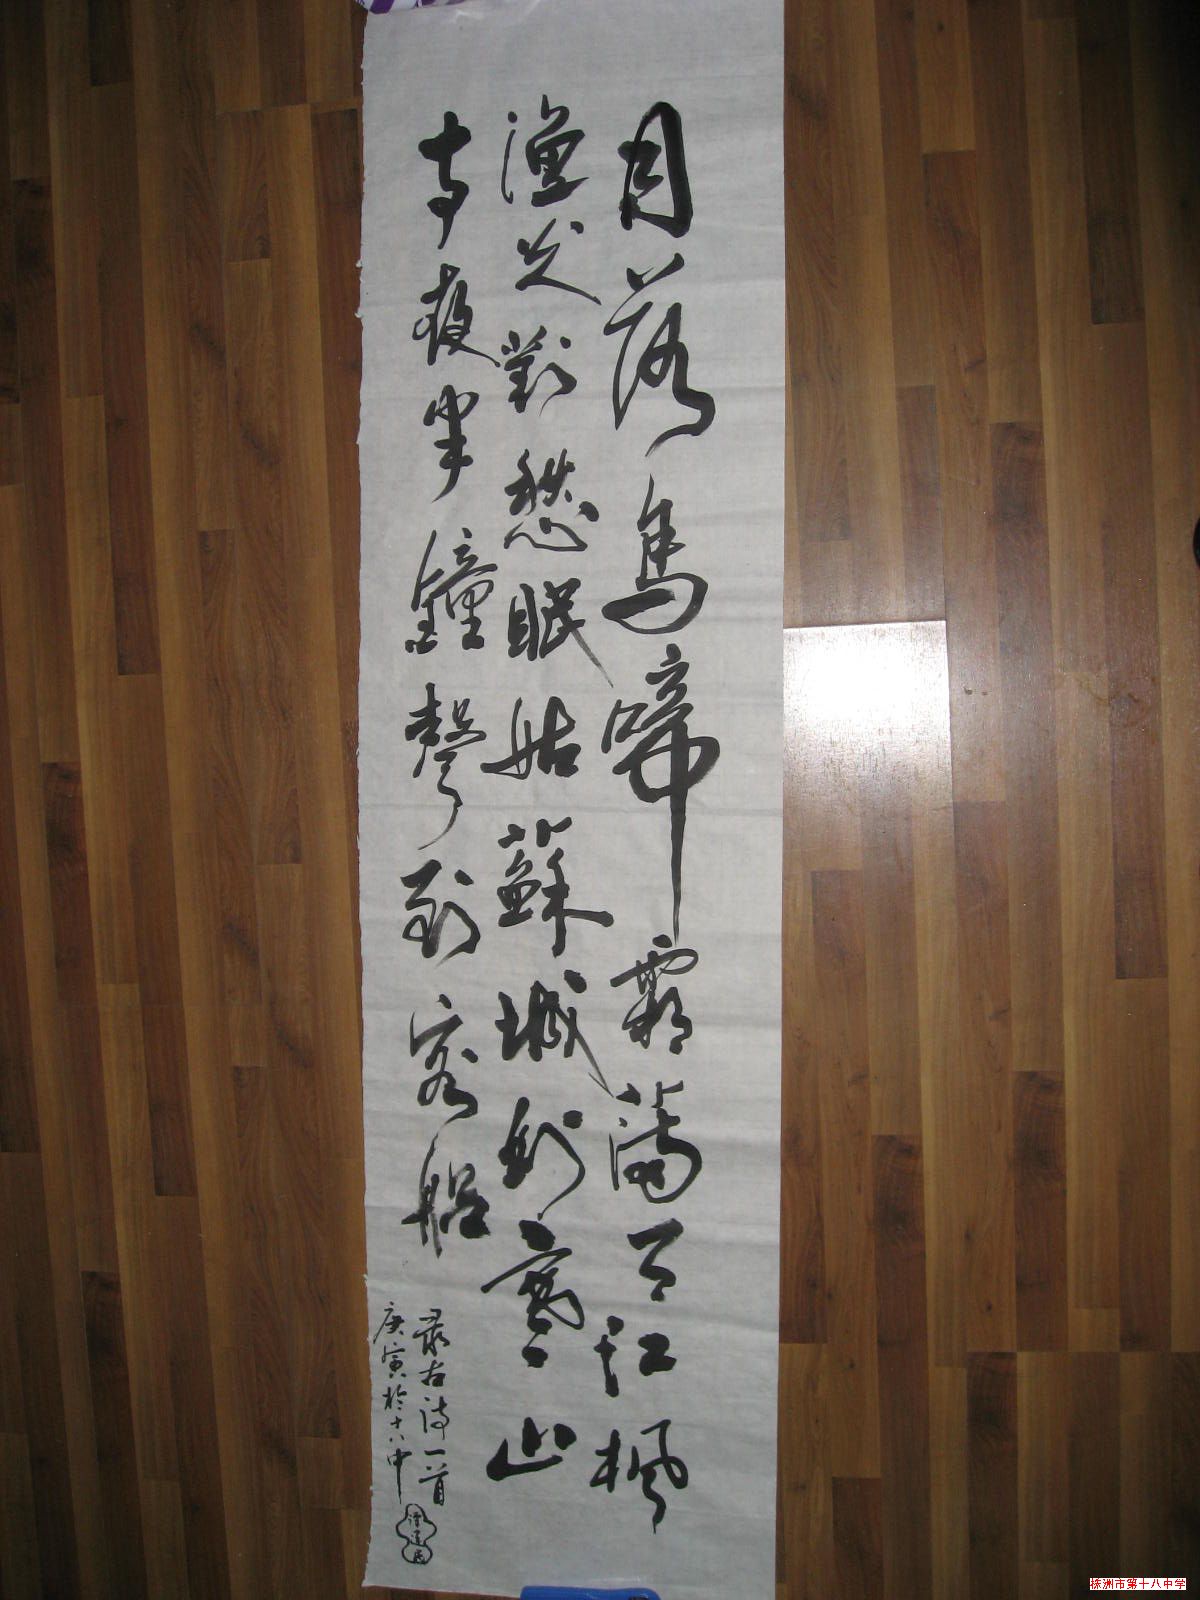 月落烏啼霜满天江枫
渔火對愁眠姑蘇城外寒山
寺夜半鐘聲到客船
录古诗一首
庚寅於十八中
株洲市第十八中学